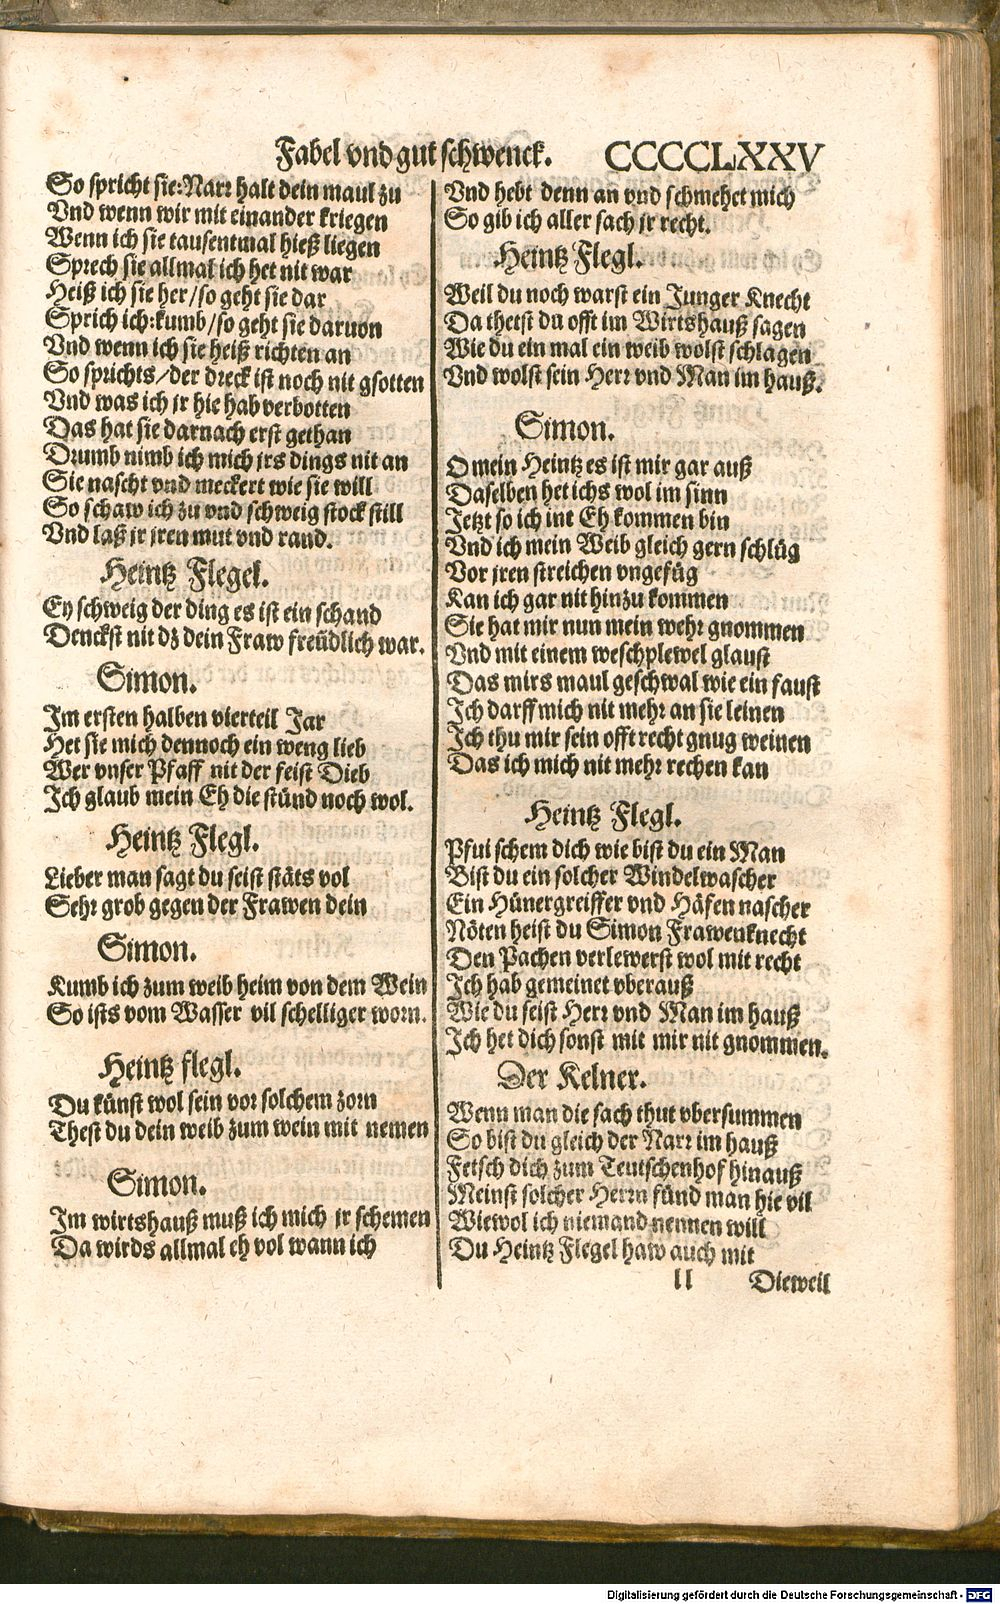 Fabel vnd gut schwenck. CCCCCLXXV
So spricht sie: Narr halt dein maul zu
Vnd wenn wir mit einander kriegen
Wenn ich sie tausentmal hieß liegen
Sprech sie allmal ich het nit war
Heiß ich sie her/so geht sie dar
Sprich ich: kumb/so geht sie daruon
Vnd wenn ich sie heiß richten an
So sprichts/der dreck ist noch nit gsotten
Vnd was ich jr hie hab verbotten
Das hat sie darnach erst gethan
Drumb nimb ich mich jrs dings nit an
Sie nascht vnd meckert wie sie will
So schaw ich zu vnd schweig stock still
Vnd laß jr jren mut vnd rand.
Heintz Flegel.
Ey schweig der ding es ist ein schand
Denckst nit dz dein Fraw freüdlich war.
Simon.
Im ersten halben vierteil Jar
Het sie mich dennoch ein weng lieb
Wer vnser Pfaff nit der feist Dieb
Ich glaub mein Eh die stünd noch wol.
Heintz Flegl.
Lieber man sagt du seist stäts vol
Sehr grob gegen der Frawen dein
Simon.
Kumb ich zum weib heim von dem Wein
So ists vom Wasser vil schelliger worn.
Heintz flegl.
Du künst wol sein vor solchem zorn
Thest du dein weib zum wein mit nemen
Simon.
Im wirtshauß muß ich mich jr schemen
Da wirds allmal eh vol wann ich
Vnd hebt denn an vnd schmehet mich
So gib ich aller sach jr recht.
Heintz Flegl.
Weil du noch warst ein Junger Knecht
Da thetst du offt im Wirtshauß sagen
Wie du ein mal ein weib wolst schlagen
Vnd wolst sein Herr vnd Man im hauß.
Simon.
O mein Heintz es ist mir gar auß
Daselben het ichs wol im sinn
Jetzt so ich int Eh kommen bin
Vnd ich mein Weib gleich gern schlüg
Vor jren streichen vngefüg
Kan ich gar nit hinzu kommen
Sie hat mir nun mein wehr gnommen
Vnd mit einem weschplewel glaust
Das mirs maul geschwal wie ein faust
Ich darff mich nit mehr an sie leinen
Ich thu mir sein offt recht gnug weinen
Das ich mich nit mehr rechen kan
Heintz Flegl.
Pfui schem dich wie bist du ein Man
Bist du ein solcher Windelwascher
Ein Hünergreiffer vnd Häfen nascher
Nöten heist du Simon Frawenknecht
Den Pachen verlewerst wol mit recht
Ich hab gemeinet vberauß
Wie du seist Herr vnd Man im hauß
Ich het dich sonst mit mir nit gnommen.
Der Kelner.
Wenn man die sach thut vbersummen
So bist du gleich der Narr im hauß
Fetsch dich zum Teutschenhof hinauß
Meinst solcher Herrn fünd man hie vil
Wiewol ich niemand nennen will
Du Heintz Flegel haw auch mit
ll Dieweil
Digitalisierung gefördert durch die Deutsche Forschungsgemeinschaft - DFG